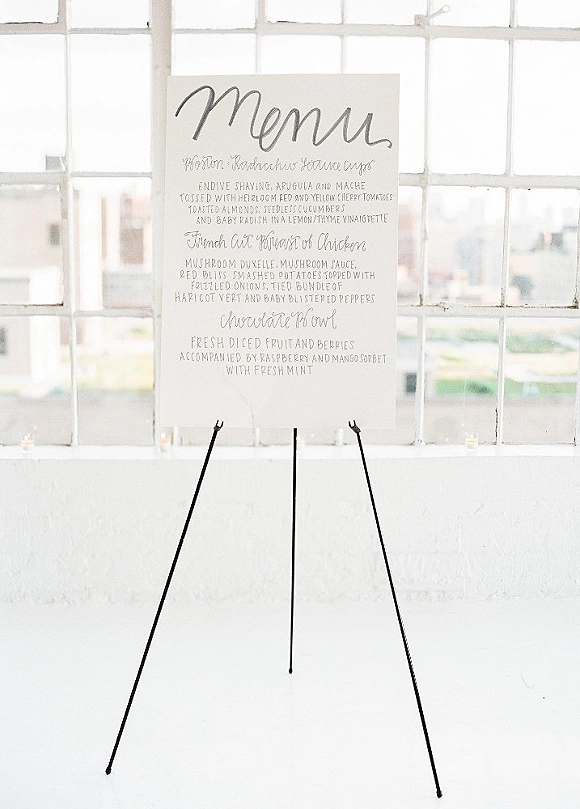 Menu
Boston & Radicchio Lettuce Cups
ENDIVE SHAVING, ARUGULA AND MACHE
TOSSED WITH HEIRLOOM RED AND YELLOW CHERRY TOMATOES
TOASTED ALMONDS, SEEDLESS CUCUMBERS
AND BABY RADISH IN A LEMON/THYME VINAIGRETTE
French Cut Breast of Chicken
MUSHROOM DUXELLE, MUSHROOM SAUCE,
RED BLISS SMASHED POTATOES TOPPED WITH
FRIZZLED ONIONS, TIED BUNDLE OF
HARICOT VERT AND BABY BLISTERED PEPPERS
Chocolate Bowl
FRESH DICED FRUIT AND BERRIES
ACCOMPANIED BY RASPBERRY AND MANGO SORBET
WITH FRESH MINT